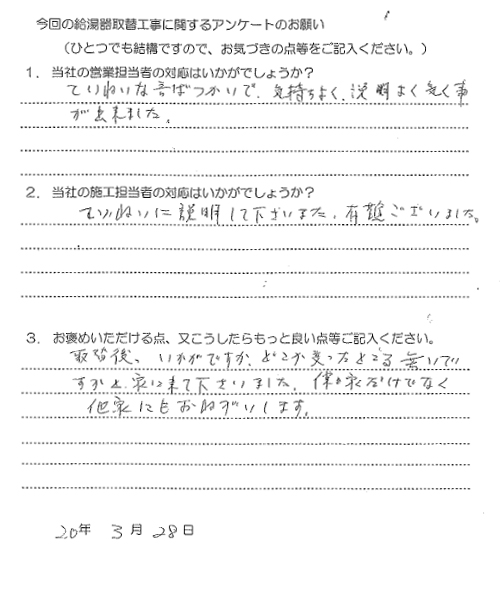 今回の給湯器取替工事に関するアンケートのお願い
（ひとつでも結構ですので、お気づきの点等をご記入ください。）
1．当社の営業担当者の対応はいかがでしょうか？
ていねいな言ばづかいで、気持ちよく、説明よく気く事
が出来ました。
2．当社の施工担当者の対応はいかがでしょうか？
ていねいに説明して下さいました、有難ございました。
3．お褒めいただける点、又こうしたらもっと良い点等ご記入ください。
取替後、いかがですか、どこか変ったところ無いで
すかと、家に来て下さいました。僕の家だけでなく
他家にもおねがいします。
20年 3月 28日